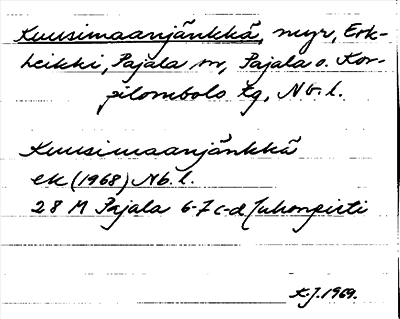 Kuusimaanjänkkä, myr, Erk-
heikki, Pajala sn, Pajala o. Kor-
pilombolo tg, Nb. l.
Kuusimaanjänkkä
ek (1968) Nb. l.
28 M Pajala 6-7 c-d Juhonpieti
K.J. 1969.